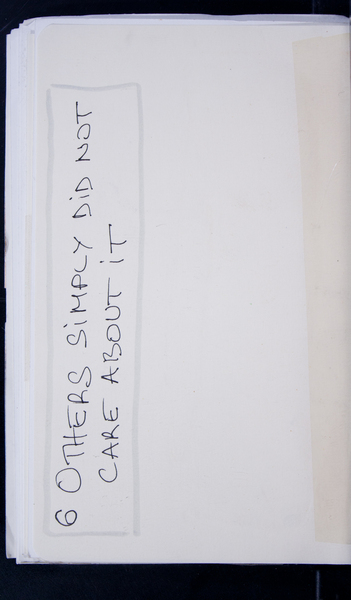 6 OTHERS SiMPLY DiD NOT
CARE ABOUT iT